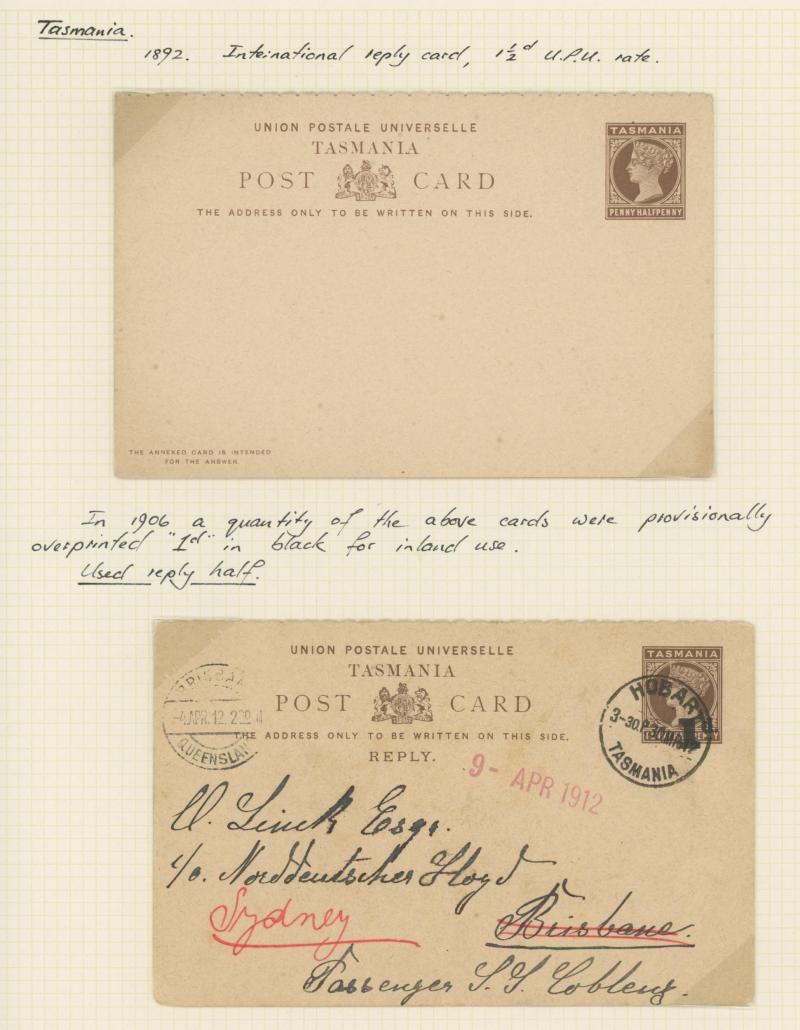 Tasmania.
1892. International reply card, 1½d U.P.U. rate.
UNION POSTALE UNIVERSELLE
TASMANIA
POST CARD
THE ADDRESS ONLY TO BE WRITTEN ON THIS SIDE.
TASMANIA
PENNY HALFPENNY
THE ANNEXED CARD IS INTENDED
FOR THE ANSWER.
In 1906 a quantity of the above cards were provisionally
overprinted "1d" in black for inland use.
Used reply half.
UNION POSTALE UNIVERSELLE
TASMANIA
POST CARD
THE ADDRESS ONLY TO BE WRITTEN ON THIS SIDE.
REPLY.
TASMANIA
HOBART
3-30.P
TASMANIA
BRISBA
-4.APR.12
QUEENSLAN
9- APR 1912
Linck Esqr.
c/o. Norddeutscher Lloyd
Sydney
Brisbane.
Passenger S.S. Coblenz.